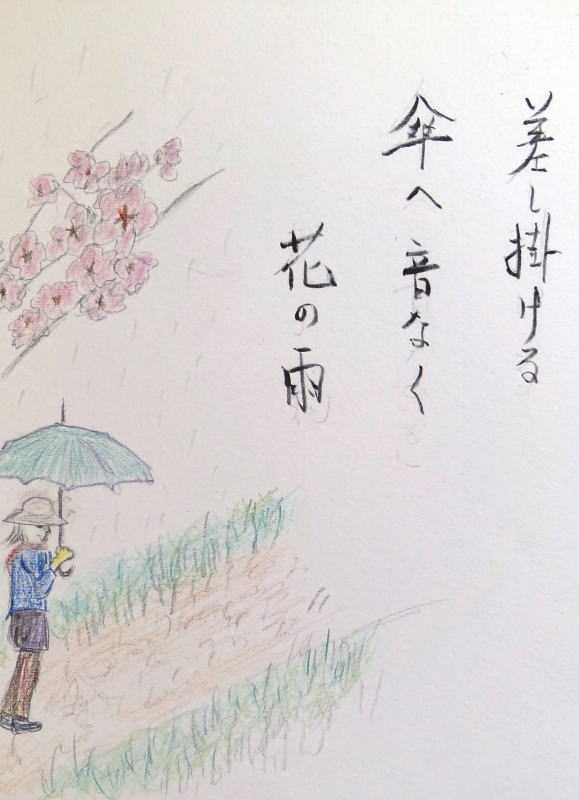 差し掛ける
傘へ音なく
花の雨